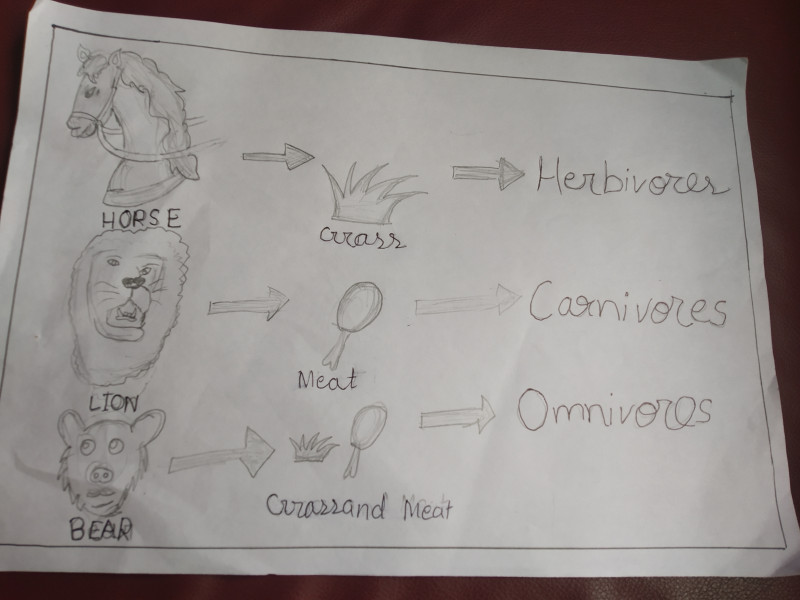 HORSE
Grass
Herbivores
LION
Meat
Carnivores
BEAR
Grass and Meat
Omnivores